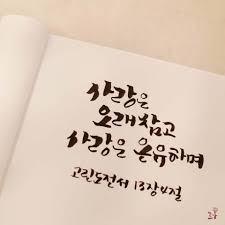 사랑은
오래참고
사랑은 온유하며
고린도전서 13장 4절